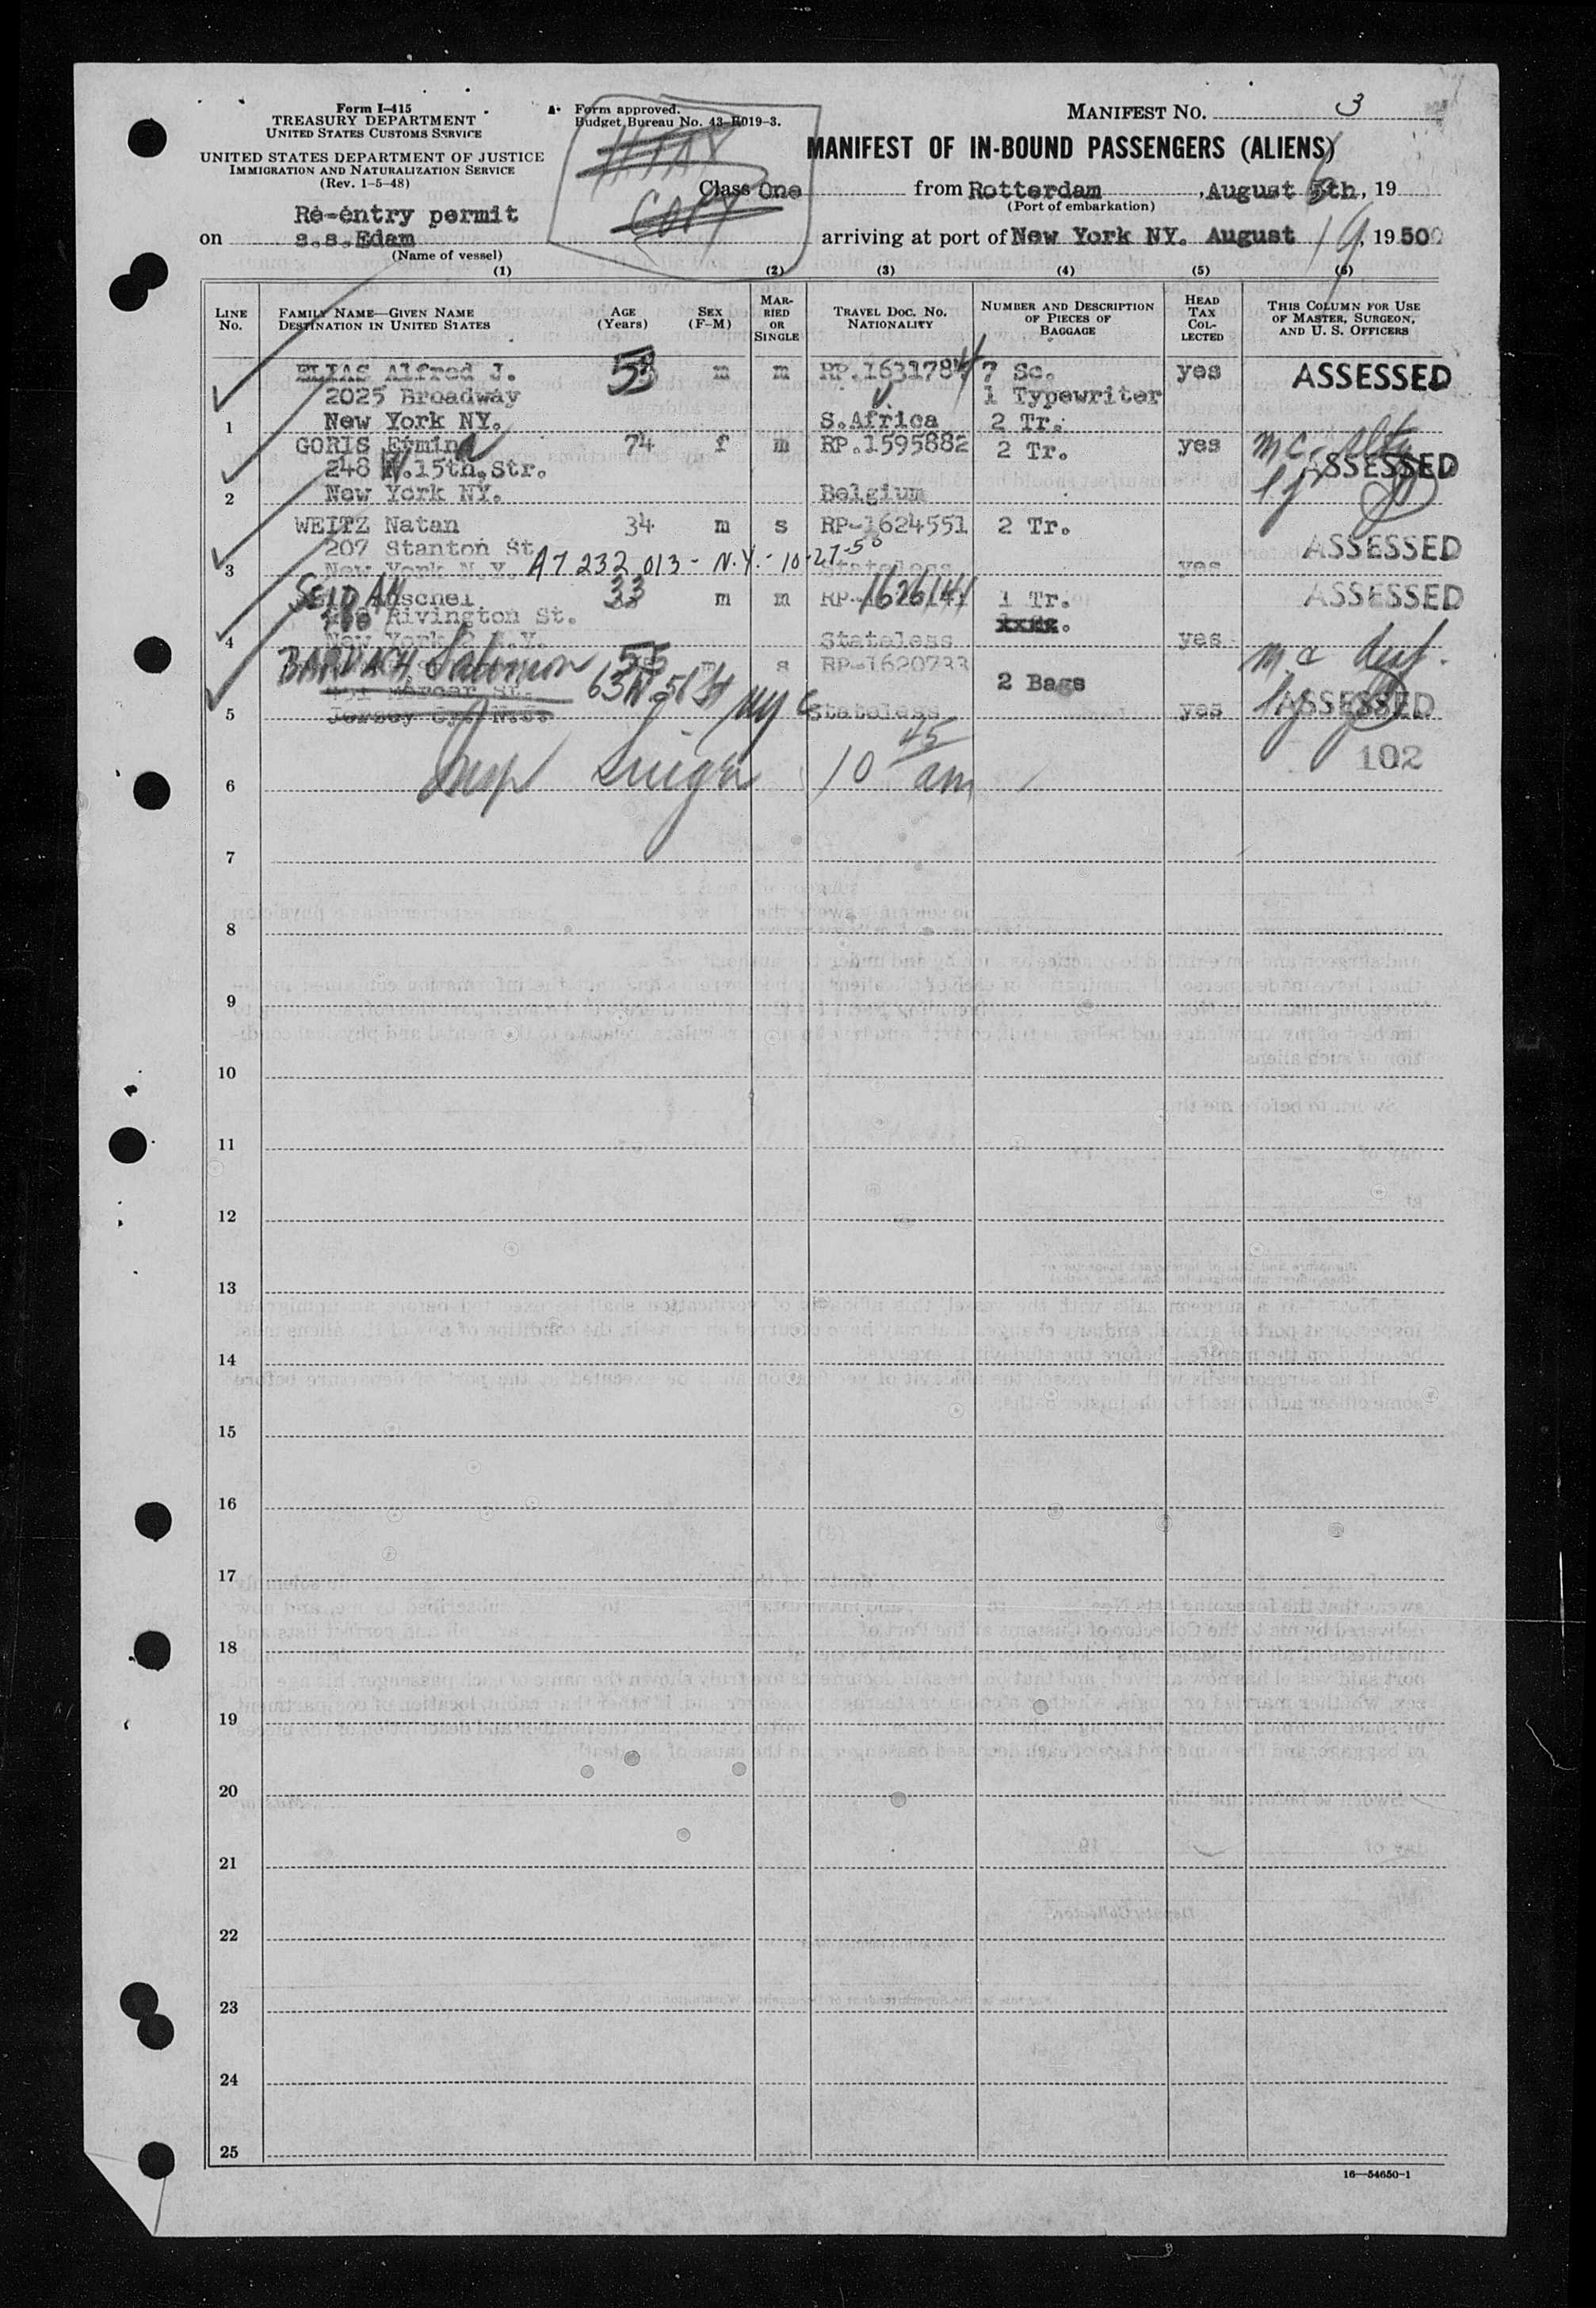 Form I-415
TREASURY DEPARTMENT
UNITED STATES CUSTOMS SERVICE
UNITED STATES DEPARTMENT OF JUSTICE
IMMIGRATION AND NATURALIZATION SERVICE
(Rev. 1-5-48)
Form approved.
Budget Bureau No. 43-R019-3.
HIAS
COPY
MANIFEST NO. 3
MANIFEST OF IN-BOUND PASSENGERS (ALIENS)
Class One from Rotterdam , August 5th, 19
(Port of embarkation)
Re-entry permit
on s.s.Edam arriving at port of New York NY. August 19, 1950
(Name of vessel)
(1) (2) (3) (4) (5) (6)
LINE NO. FAMILY NAME—GIVEN NAME DESTINATION IN UNITED STATES AGE (Years) SEX (F-M) MARRIED OR SINGLE TRAVEL DOC. NO. NATIONALITY NUMBER AND DESCRIPTION OF PIECES OF BAGGAGE HEAD TAX COLLECTED THIS COLUMN FOR USE OF MASTER, SURGEON, AND U. S. OFFICERS
ELIAS Alfred J. 58 m m RP.1631784 7 Sc. yes ASSESSED
2025 Broadway 1 Typewriter
1 New York NY. S.Africa 2 Tr.
GORIS Ermina 74 f m RP.1595882 2 Tr. yes
248 W.15th.Str. ASSESSED
2 New York NY. Belgium
WEITZ Natan 34 m s RP-1624551 2 Tr.
207 Stanton St. ASSESSED
3 New York N.Y. A7 232 013 - N.Y. - 10-27-50 Stateless yes
33 m m RP-1626141 1 Tr. ASSESSED
Rivington St. xxxx.
4 New York N.Y. Stateless yes
BARDACH, Salomon 55 m s RP-1620733
Mercer St. 63 W. 51 St NYC 2 Bags
5 Jersey Cy. N.J. Stateless yes ASSESSED
102
6 Insp Singer 10 45 am
7
8
9
10
11
12
13
14
15
16
17
18
19
20
21
22
23
24
25
16—54650-1